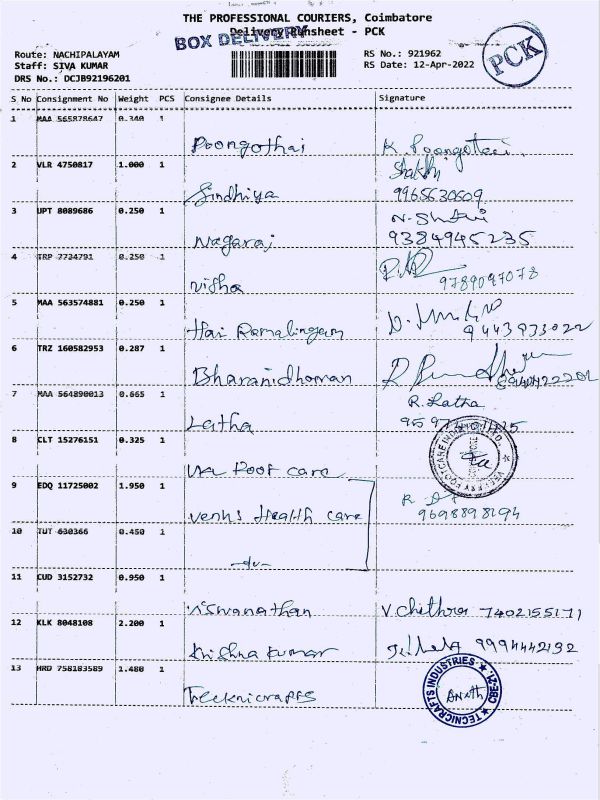 THE PROFESSIONAL COURIERS, Coimbatore
Delivery Runsheet - PCK
BOX DELIVERY
PCK
Route: NACHIPALAYAM
Staff: SIVA KUMAR
DRS No.: DCJB92196201
RS No.: 921962
RS Date: 12-Apr-2022
S No Consignment No Weight PCS Consignee Details Signature
1 MAA 565878647 0.340 1
Poongothai K. Poongotai
2 VLR 4750817 1.000 1
Sindhiya 9965630509
3 UPT 8089686 0.250 1
Nagaraj 9384945235
4 TRP 7724791 0.250 1
Nisha 9789097078
5 MAA 563574881 0.250 1
Hari Ramalingam 9443933022
6 TRZ 160582953 0.287 1
Bharanidharan
7 MAA 564890013 0.665 1
R. Latha
Latha
8 CLT 15276151 0.325 1
Foot care
9 EDQ 11725002 1.950 1
Venus Health care 9698898194
10 TUT 630366 0.450 1
-do-
11 CUD 3152732 0.950 1
Viswanathan V. Chithra 7402155171
12 KLK 8048108 2.200 1
Krishna Kumar 9994442132
13 HRD 758183589 1.480 1
Tecknicrafts
TECNICRAFTS INDUSTRIES CBE-21